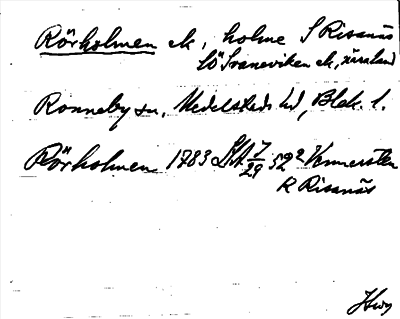 Rörholmen ek, holme S Risanäs
SÖ Svaneviken ek, nära land
Ronneby sn, Medelstads hd, Blek. l.
Rörholmen 1783 LMA 7/29 52² Wennersten
R Risanäs